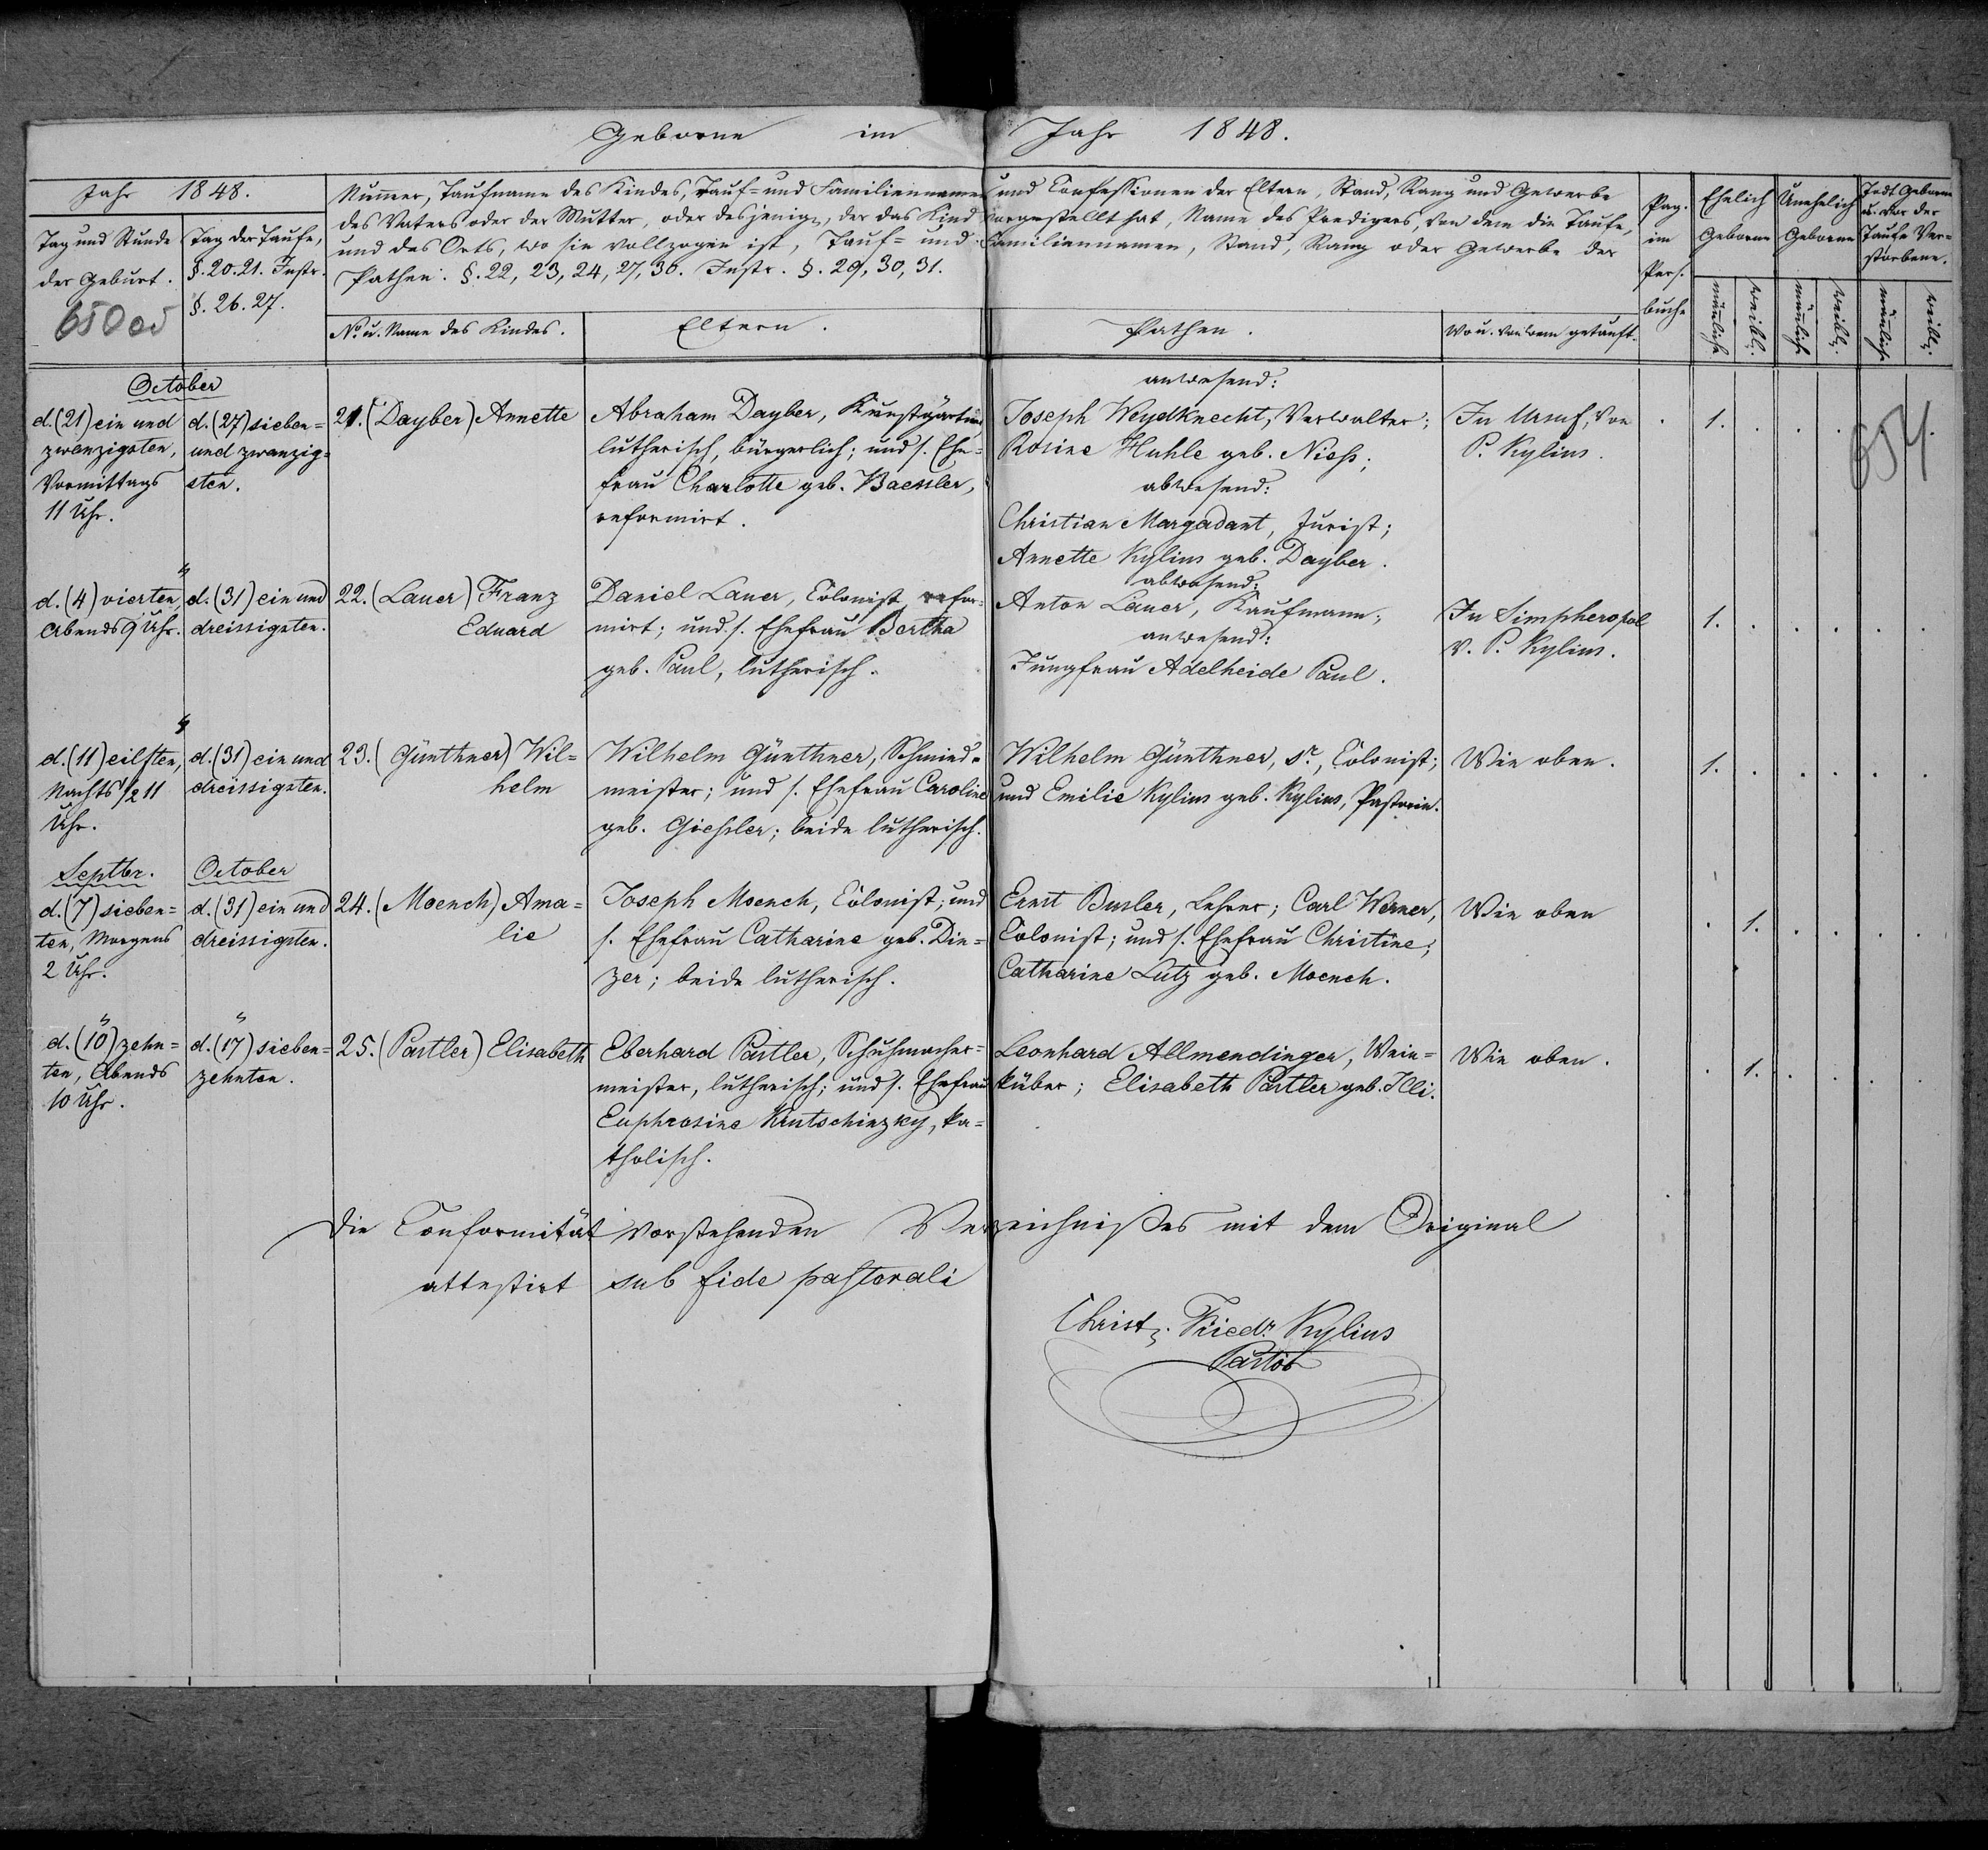 Geborne im Jahr 1848.
Jahr 1848.
Tag und Stunde der Geburt.
650
Tag der Taufe, §. 20. 21. Instr. §. 26. 27.
Numer, Taufname des Kindes, Tauf= und Familiennamen und Confessionen der Eltern, Stand, Rang und Gewerbe
des Vaters oder der Mutter, oder desjenig., der das Kind vorgestellt hat, Name des Predigers, von dem die Taufe,
und des Orts, wo sie vollzogen ist, Tauf= und Familiennamen, Stand, Rang oder Gewerbe der
Pathen. §. 22, 23, 24, 27, 30. Instr. §. 29, 30, 31.
No. u. Name des Kindes.
Eltern.
Pathen.
Wo u. von wem getauft.
Pag. im Pers. buche
Ehelich Geborne
Unehelich Geborne
Todt Geborne u. vor der Taufe Ver= storbene.
mänliche
weibl.
mänliche
weibl.
mänliche
weibl.
October
d. (21) ein und
zwanzigsten,
Vormittags
11 Uhr.
d. (27) sieben=
und zwanzig=
sten.
21. (Dayber) Annette
Abraham Dayber, Kunstgärtner
lutherisch, bürgerlich; und s. Ehe=
frau Charlotte geb. Baessler,
reformirt.
anwesend:
Joseph Weydknecht, Verwalter;
Rosine Huhle geb. Niess;
abwesend:
Christian Margadant, Jurist;
Annette Kylius geb. Dayber.
In Ursuf, von
P. Kylius.
1.
654.
"
d. (4) vierten,
Abends 9 Uhr.
d. (31) ein und
dreissigsten.
22. (Lauer) Franz
Eduard
Daniel Lauer, Colonist, refor=
mirt; und s. Ehefrau Bertha
geb. Paul, lutherisch.
abwesend:
Anton Lauer, Kaufmann;
anwesend:
Jungfrau Adelheide Paul.
In Simpheropol
v. P. Kylius.
1.
"
d. (11) eilften,
Nachts 1/2 11
Uhr.
d. (31) ein und
dreissigsten.
23. (Günthner) Wil=
helm
Wilhelm Günthner, Schmied=
meister; und s. Ehefrau Caroline
geb. Giessler; beide lutherisch.
Wilhelm Günthner, sr., Colonist;
und Emilie Kylius geb. Kylius, Pastorin.
Wie oben.
1.
Septbr.
October
d. (7) sieben=
ten, Morgens
2 Uhr.
d. (31) ein und
dreissigsten.
24. (Moench) Ama=
lie
Joseph Moench, Colonist; und
s. Ehefrau Catharine geb. Din=
zer; beide lutherisch.
Ernst Busler, Lehrer; Carl Werner,
Colonist; und s. Ehefrau Christine;
Catharine Lutz geb. Moench.
Wie oben
1.
"
"
d. (10) zehn=
ten, Abends
10 Uhr.
d. (17) sieben=
zehnten.
25. (Pastler) Elisabeth
Eberhard Pastler, Schuhmacher=
meister, lutherisch; und s. Ehefrau
Euphrosine Krutschinzky, ka=
tholisch.
Leonhard Allmendinger, Wein=
küber; Elisabeth Pastler geb. Illi.
Wie oben.
1.
Die Conformität vorstehenden Verzeichnißes mit dem Original
attestirt sub fide pastorali
Christ. Friedr. Kylius
Pastor